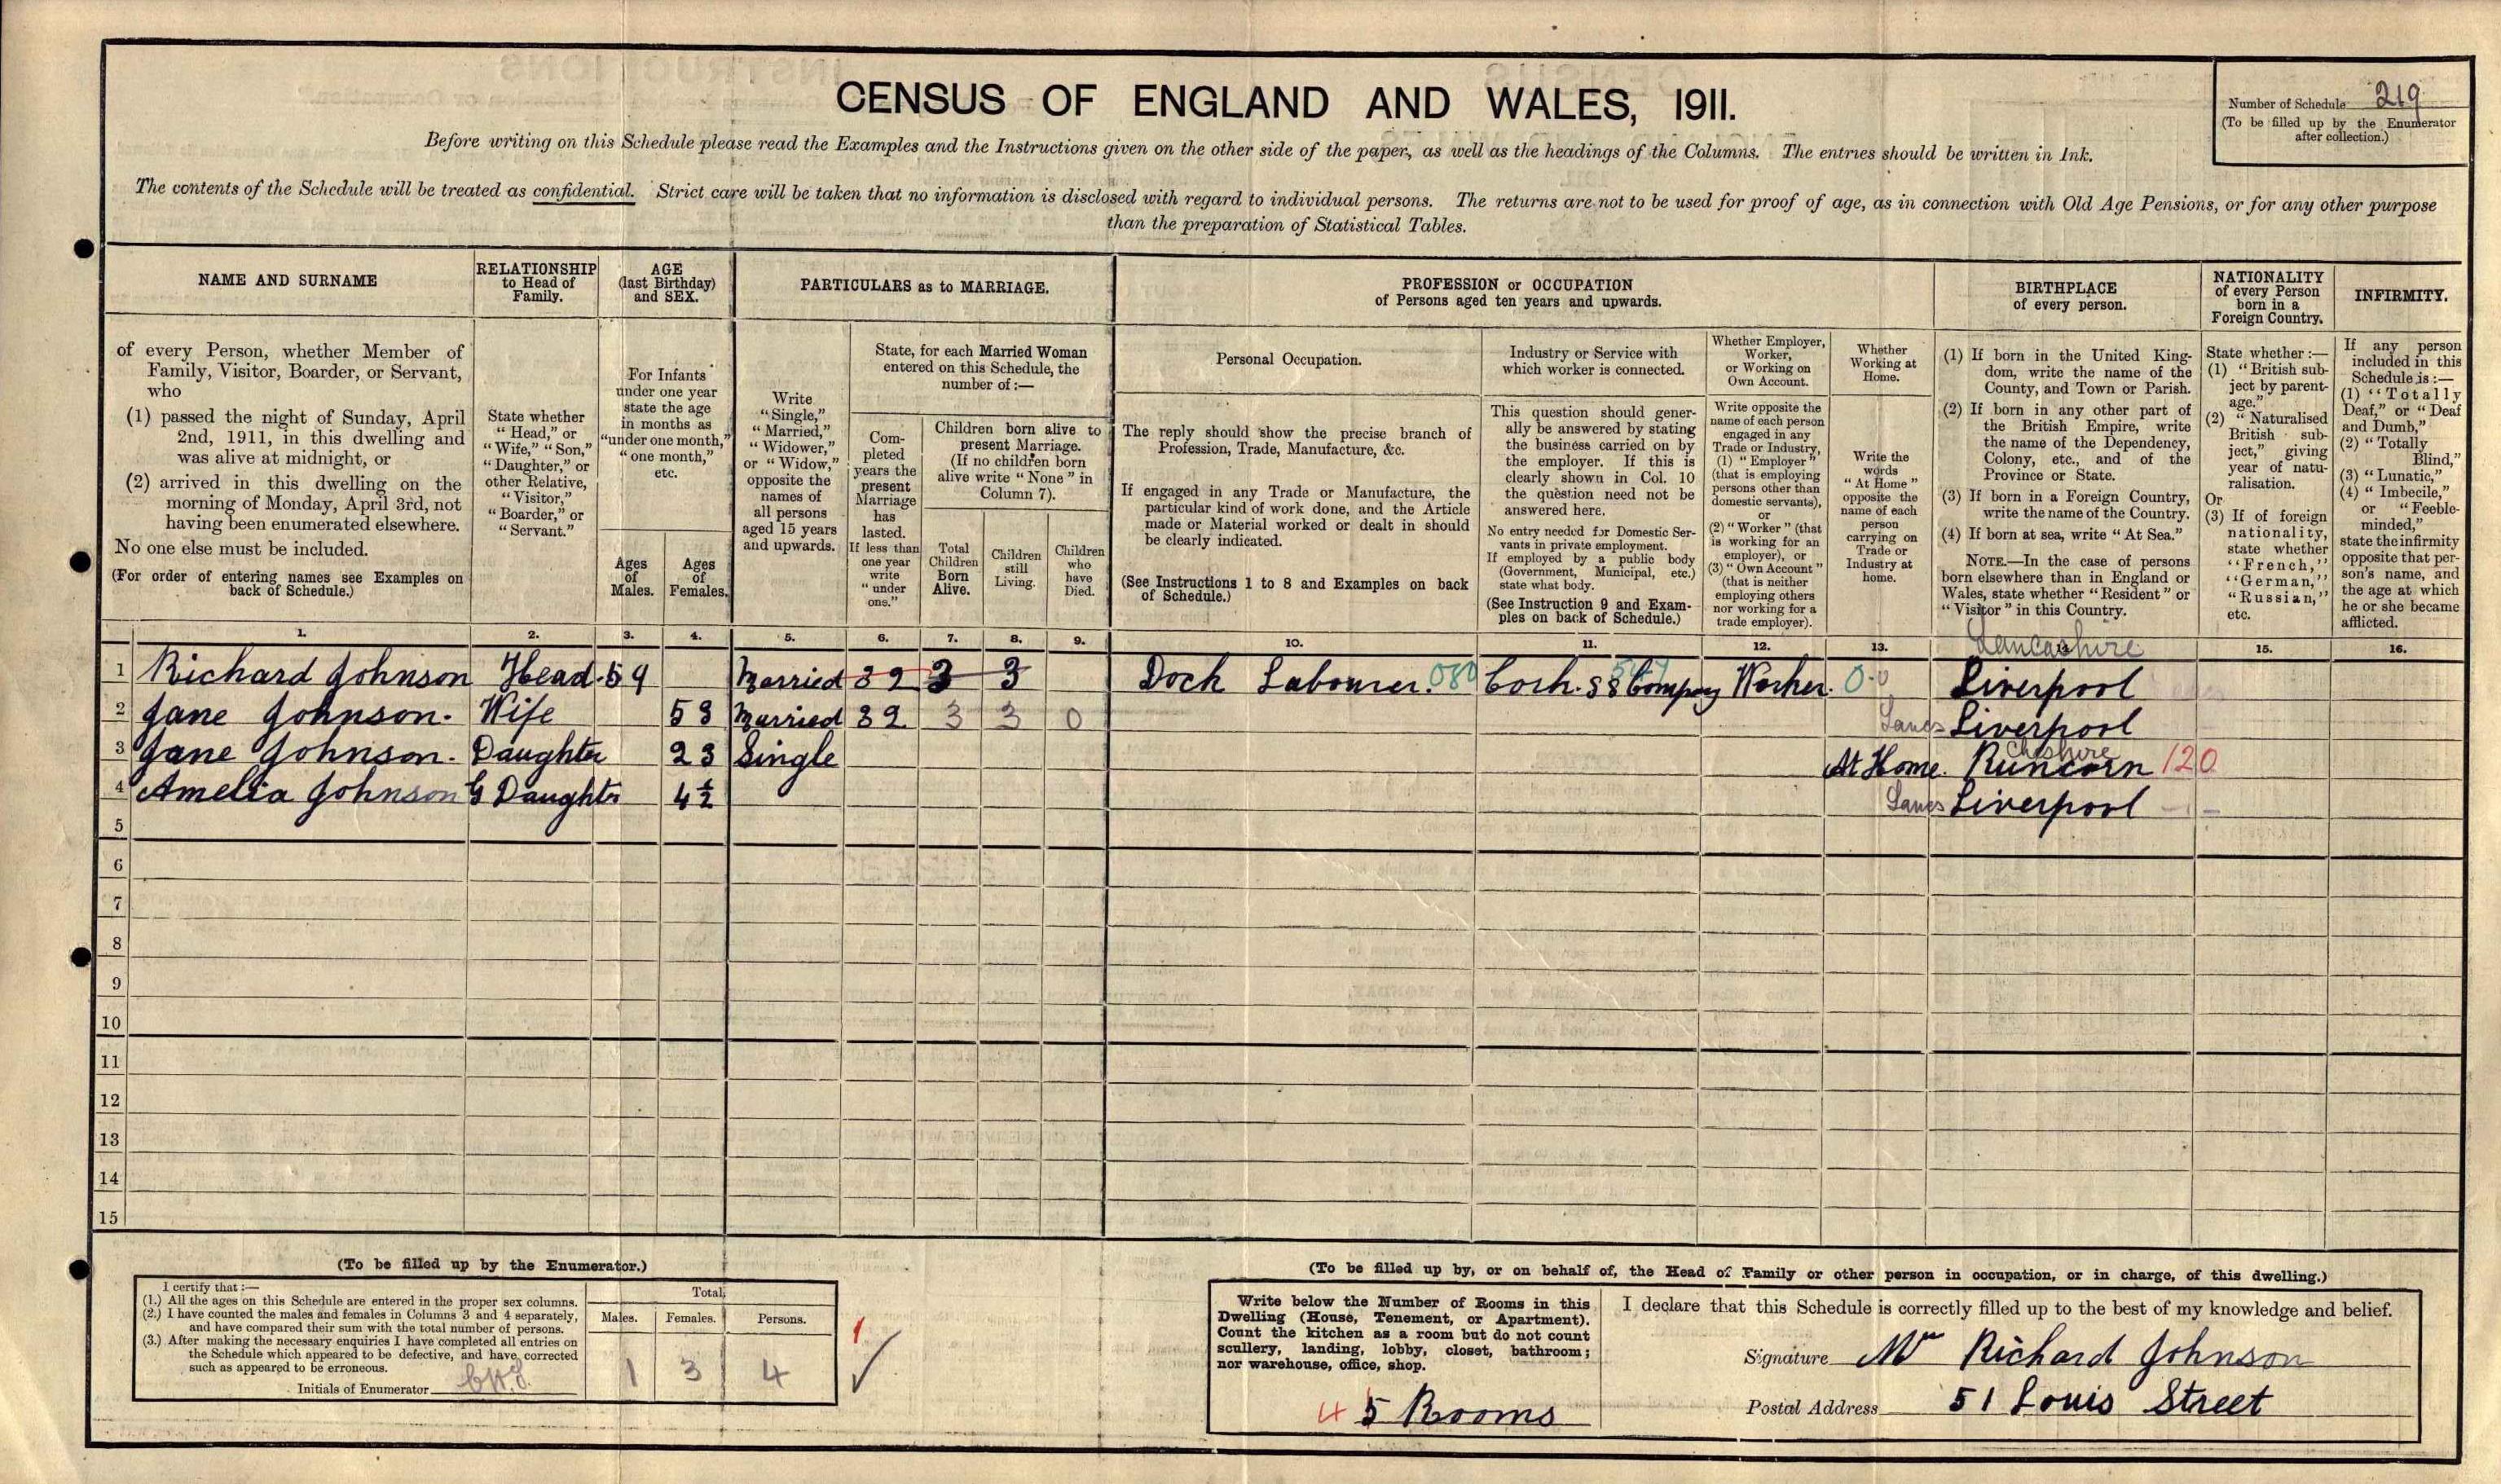 CENSUS OF ENGLAND AND WALES, 1911.
Number of Schedule 219
(To be filled up by the Enumerator
after collection.)
Before writing on this Schedule please read the Examples and the Instructions given on the other side of the paper, as well as the headings of the Columns. The entries should be written in Ink.
The contents of the Schedule will be treated as confidential. Strict care will be taken that no information is disclosed with regard to individual persons. The returns are not to be used for proof of age, as in connection with Old Age Pensions, or for any other purpose
than the preparation of Statistical Tables.
NAME AND SURNAME
of every Person, whether Member of
Family, Visitor, Boarder, or Servant,
who
(1) passed the night of Sunday, April
2nd, 1911, in this dwelling and
was alive at midnight, or
(2) arrived in this dwelling on the
morning of Monday, April 3rd, not
having been enumerated elsewhere.
No one else must be included.
(For order of entering names see Examples on
back of Schedule.)
RELATIONSHIP
to Head of
Family.
State whether
"Head," or
"Wife," "Son,"
"Daughter," or
other Relative,
"Visitor,"
"Boarder," or
"Servant."
AGE
(last Birthday)
and SEX.
For Infants
under one year
state the age
in months as
"under one month,"
"one month,"
etc.
Ages
of
Males.
Ages
of
Females.
PARTICULARS as to MARRIAGE.
Write
"Single,"
"Married,"
"Widower,"
or "Widow,"
opposite the
names of
all persons
aged 15 years
and upwards.
State, for each Married Woman
entered on this Schedule, the
number of:—
Com-
pleted
years the
present
Marriage
has
lasted.
If less than
one year
write
"under
one."
Children born alive to
present Marriage.
(If no children born
alive write "None" in
Column 7).
Total
Children
Born
Alive.
Children
still
Living.
Children
who
have
Died.
PROFESSION or OCCUPATION
of Persons aged ten years and upwards.
Personal Occupation.
The reply should show the precise branch of
Profession, Trade, Manufacture, &c.
If engaged in any Trade or Manufacture, the
particular kind of work done, and the Article
made or Material worked or dealt in should
be clearly indicated.
(See Instructions 1 to 8 and Examples on back
of Schedule.)
Industry or Service with
which worker is connected.
This question should gener-
ally be answered by stating
the business carried on by
the employer. If this is
clearly shown in Col. 10
the question need not be
answered here.
No entry needed for Domestic Ser-
vants in private employment.
If employed by a public body
(Government, Municipal, etc.)
state what body.
(See Instruction 9 and Exam-
ples on back of Schedule.)
Whether Employer,
Worker,
or Working on
Own Account.
Write opposite the
name of each person
engaged in any
Trade or Industry,
(1) "Employer"
(that is employing
persons other than
domestic servants),
or
(2) "Worker" (that
is working for an
employer), or
(3) "Own Account"
(that is neither
employing others
nor working for a
trade employer).
Whether
Working at
Home.
Write the
words
"At Home"
opposite the
name of each
person
carrying on
Trade or
Industry at
home.
BIRTHPLACE
of every person.
(1) If born in the United King-
dom, write the name of the
County, and Town or Parish.
(2) If born in any other part of
the British Empire, write
the name of the Dependency,
Colony, etc., and of the
Province or State.
(3) If born in a Foreign Country,
write the name of the Country.
(4) If born at sea, write "At Sea."
NOTE.—In the case of persons
born elsewhere than in England or
Wales, state whether "Resident" or
"Visitor" in this Country.
NATIONALITY
of every Person
born in a
Foreign Country.
State whether:—
(1) "British sub-
ject by parent-
age."
(2) "Naturalised
British sub-
ject," giving
year of natu-
ralisation.
Or
(3) If of foreign
nationality,
state whether
"French,"
"German,"
"Russian,"
etc.
INFIRMITY.
If any person
included in this
Schedule is:—
(1) "Totally
Deaf," or "Deaf
and Dumb,"
(2) "Totally
Blind,"
(3) "Lunatic,"
(4) "Imbecile,"
or "Feeble-
minded,"
state the infirmity
opposite that per-
son's name, and
the age at which
he or she became
afflicted.
1. 2. 3. 4. 5. 6. 7. 8. 9. 10. 11. 12. 13. 14. 15. 16.
Lancashire
1 Richard Johnson Head. 59 Married 32 3 3 Dock Labourer. 080 SS Company Worker. 0 Liverpool
2 Jane Johnson. Wife 53 Married 32 3 3 0 Lancs Liverpool
Cheshire
3 Jane Johnson. Daughter 23 Single At Home. Runcorn 120
4 Amelia Johnson G Daughter 4½ Lancs Liverpool
5
6
7
8
9
10
11
12
13
14
15
(To be filled up by the Enumerator.)
I certify that:—
(1.) All the ages on this Schedule are entered in the proper sex columns.
(2.) I have counted the males and females in Columns 3 and 4 separately,
and have compared their sum with the total number of persons.
(3.) After making the necessary enquiries I have completed all entries on
the Schedule which appeared to be defective, and have corrected
such as appeared to be erroneous.
Initials of Enumerator
Total.
Males. Females. Persons.
1 3 4
1
(To be filled up by, or on behalf of, the Head of Family or other person in occupation, or in charge, of this dwelling.)
Write below the Number of Rooms in this
Dwelling (House, Tenement, or Apartment).
Count the kitchen as a room but do not count
scullery, landing, lobby, closet, bathroom;
nor warehouse, office, shop.
4 5 Rooms
I declare that this Schedule is correctly filled up to the best of my knowledge and belief.
Signature Mr Richard Johnson
Postal Address 51 Louis Street